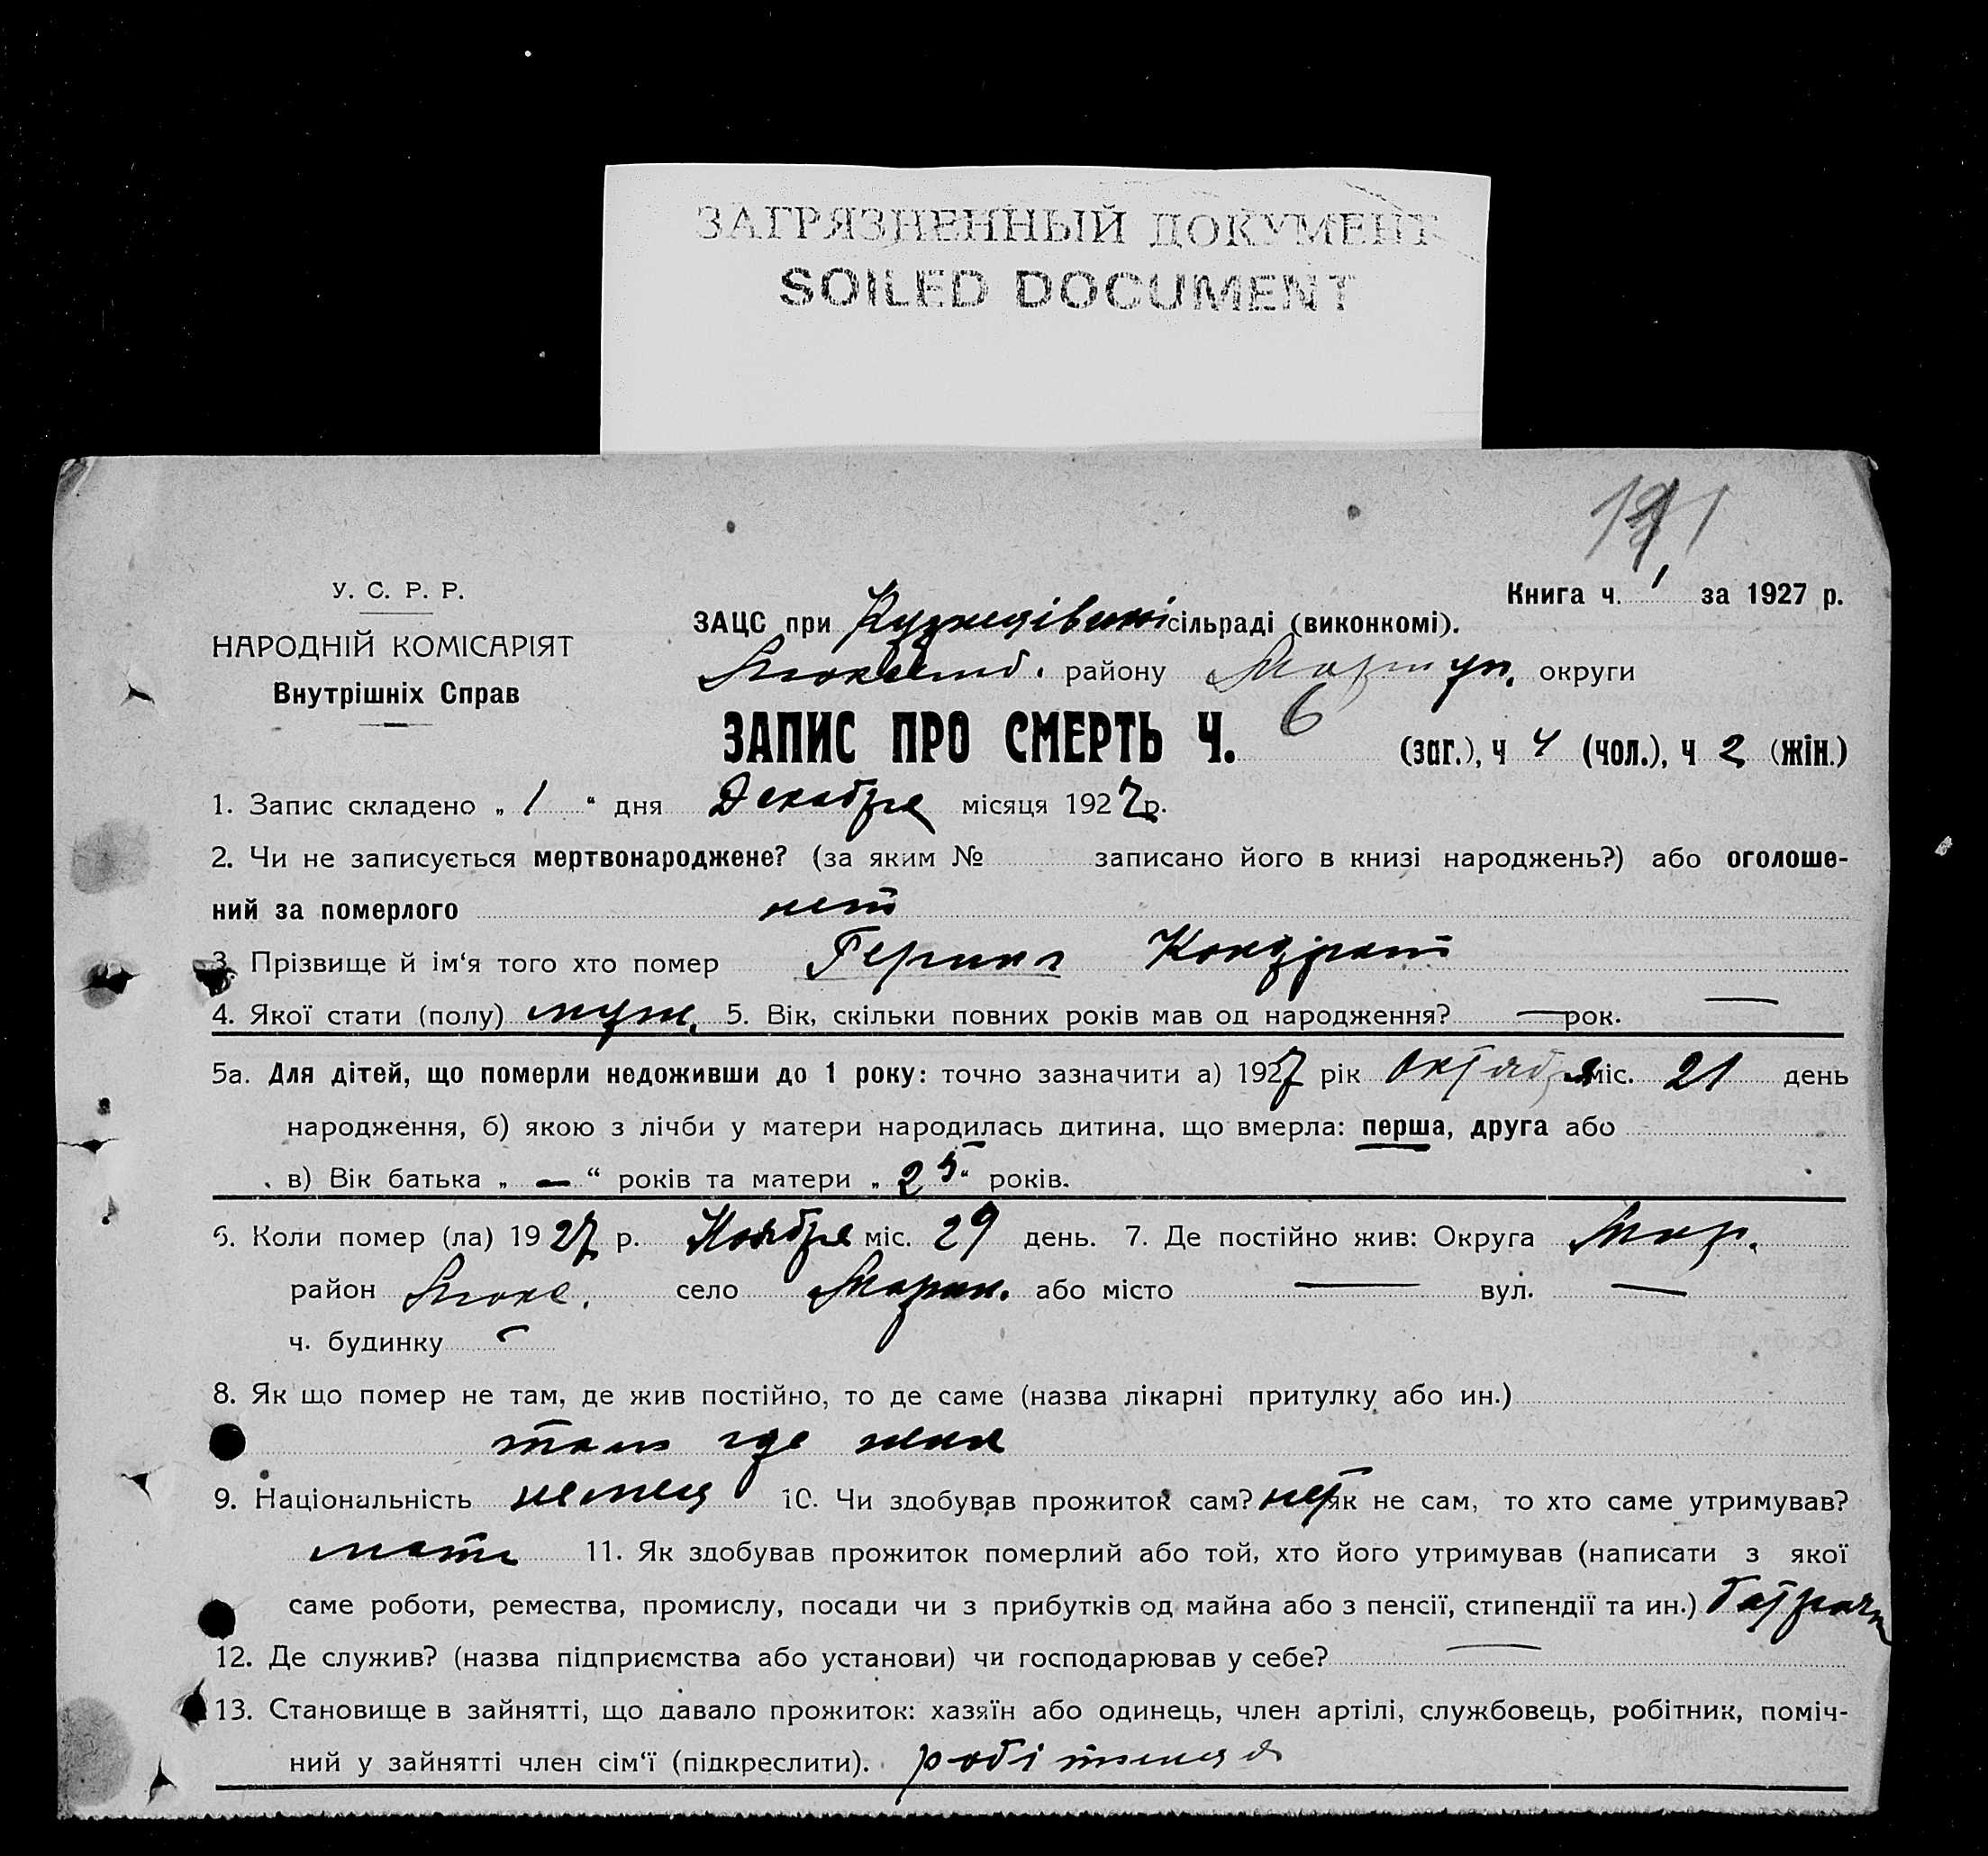 ЗАГРЯЗНЕННЫЙ ДОКУМЕНТ
SOILED DOCUMENT
У. С. Р. Р.
НАРОДНІЙ КОМІСАРІЯТ
Внутрішніх Справ
Книга ч. 1 за 1927 р.
ЗАЦС при сільраді (виконкомі).
району Мариуп. округи
ЗАПИС ПРО СМЕРТЬ Ч. 6 (заг.), ч 4 (чол.), ч 2 (жін.)
1. Запис складено „ 1 “ дня Декабря місяця 1927 р.
2. Чи не записується мертвонароджене? (за яким № записано його в книзі народжень?) або оголоше-
ний за померлого нет
3. Прізвище й ім‘я того хто помер Геринг Кондрат
4. Якої стати (полу) муж. 5. Вік, скільки повних років мав од народження? — рок. —
5а. Для дітей, що померли недоживши до 1 року: точно зазначити а) 1927 рік Октября міс. 21 день
народження, б) якою з лічби у матери народилась дитина, що вмерла: перша, друга або
в) Вік батька „ — “ років та матери „ 25 “ років.
6. Коли помер (ла) 1927 р. Ноября міс. 29 день. 7. Де постійно жив: Округа Мар.
район Люкс. село або місто — вул. —
ч. будинку
8. Як що помер не там, де жив постійно, то де саме (назва лікарні притулку або ин.)
там где жил
9. Національність немец 10. Чи здобував прожиток сам? нет як не сам, то хто саме утримував?
мать 11. Як здобував прожиток померлий або той, хто його утримував (написати з якої
саме роботи, ремества, промислу, посади чи з прибутків од майна або з пенсії, стипендії та ин.)
12. Де служив? (назва підприємства або установи) чи господарював у себе? —
13. Становище в зайнятті, що давало прожиток: хазяїн або одинець, член артілі, службовець, робітник, поміч-
ний у зайнятті член сім‘ї (підкреслити). робітниця